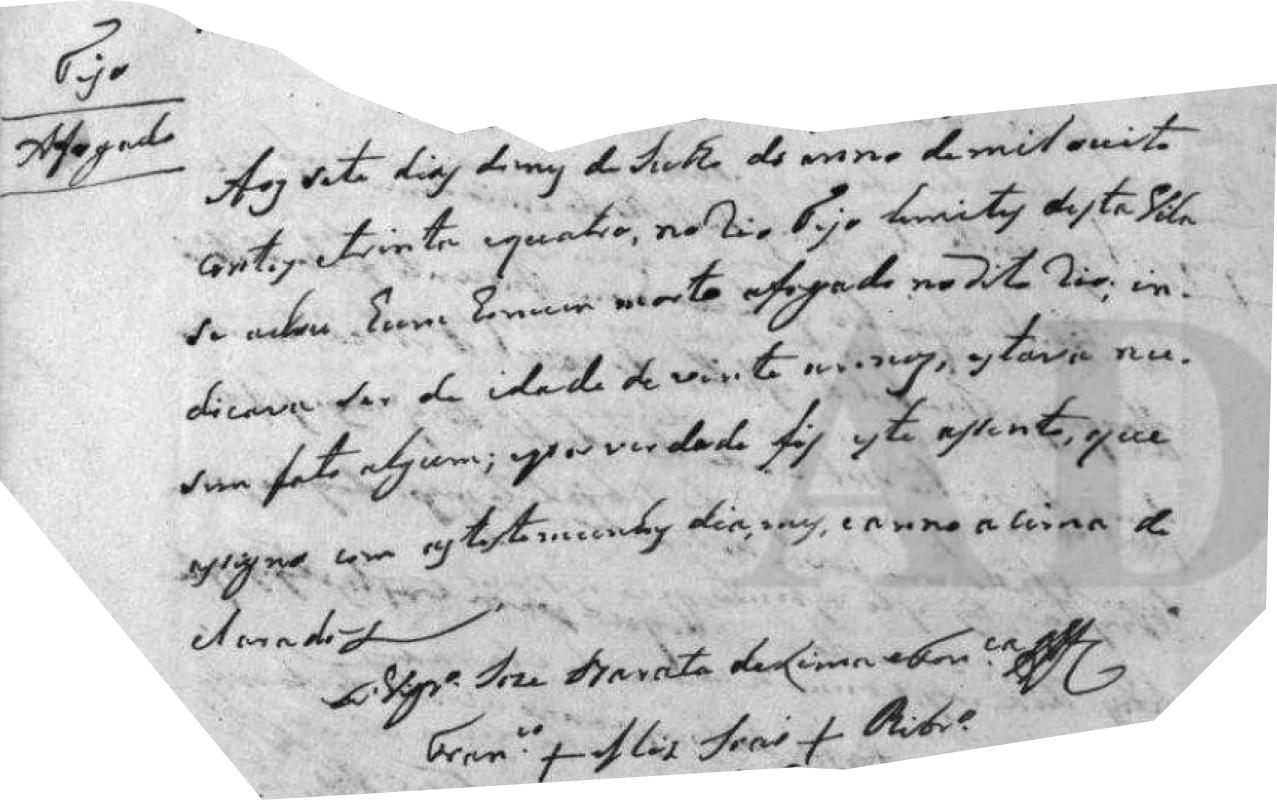 Tejo
Afogado
Aos sete dias do mes de Julho do anno de mil e oito
centos e trinta e quatro, no Rio Tejo limites desta Villa
se achou hum homem morto afogado no dito Rio, in-
dicava ser de idade de vinte annos, estava nu-
sem fato algum; e por verdade fis este assento, que
assigno com as testemunhas dia, mes, e anno acima de
clarado
O Vigrº. Joze Barata de Lima e Fonca
Franco + Joáo + Ribrº.
AD